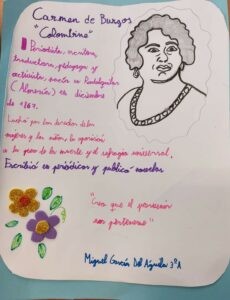 Carmen de Burgos
"Colombine"
Periodista, escritora,
traductora, pedagoga y
activista, nacía en Rodalquilar
(Almería) en diciembre
de 1867.
Luchó por los derechos de las
mujeres y los niños, la oposición
a la pena de muerte y el sufragio universal.
Escribió en periódicos y publicó novelas
"Creo que el porvenir
nos pertenece"
Miguel García Del Águila 3ºA